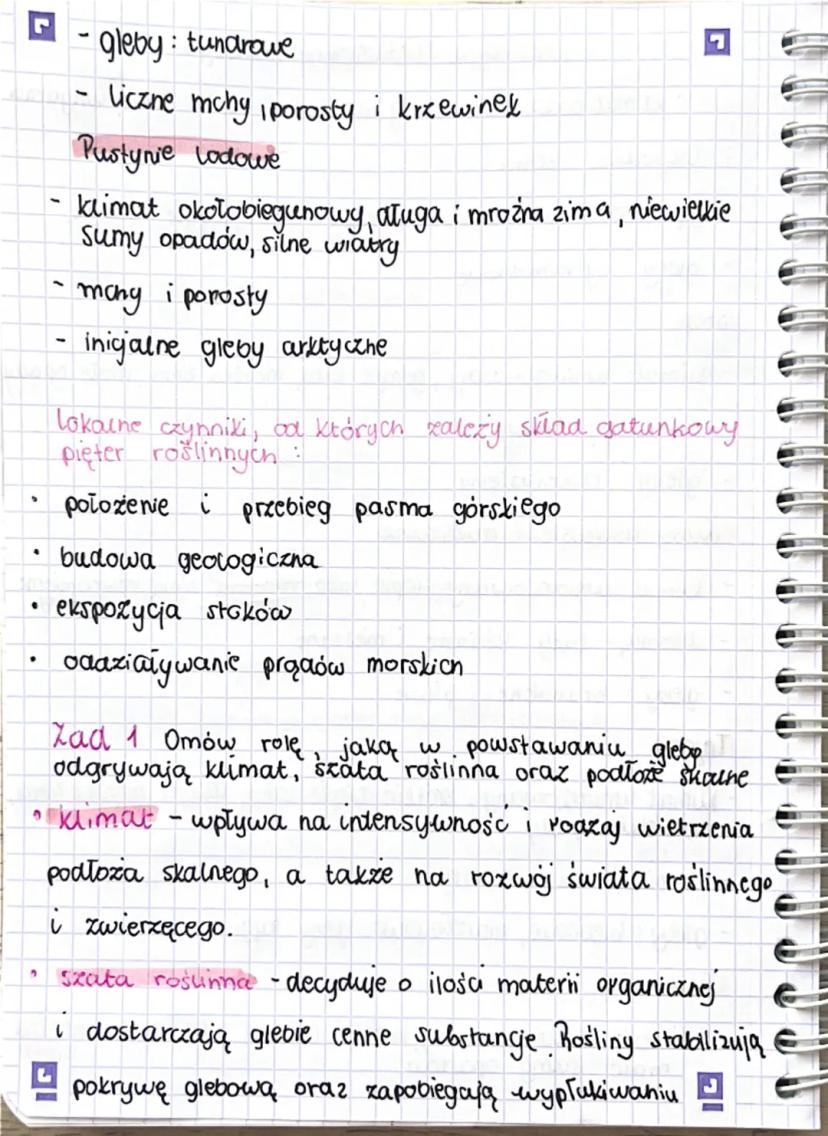 - gleby : tundrowe
- liczne mchy, porosty i krzewinek
Pustynie lodowe
- klimat okołobiegunowy, długa i mroźna zima, niewielkie
sumy opadów, silne wiatry
- mchy i porosty
- inicjalne gleby arktyczne
Lokalne czynniki, od których zależy skład gatunkowy
pięter roślinnych :
• położenie i przebieg pasma górskiego
• budowa geologiczna
• ekspozycja stoków
• oddziaływanie prądów morskich
Zad 1 Omów rolę, jaką w powstawaniu gleby
odgrywają klimat, szata roślinna oraz podłoże skalne
• klimat - wpływa na intensywność i rodzaj wietrzenia
podłoża skalnego, a także na rozwój świata roślinnego
i zwierzęcego.
• szata roślinna - decyduje o ilości materii organicznej
i dostarczają glebie cenne substancje. Rośliny stabilizują
pokrywę glebową oraz zapobiegają wypłukiwaniu